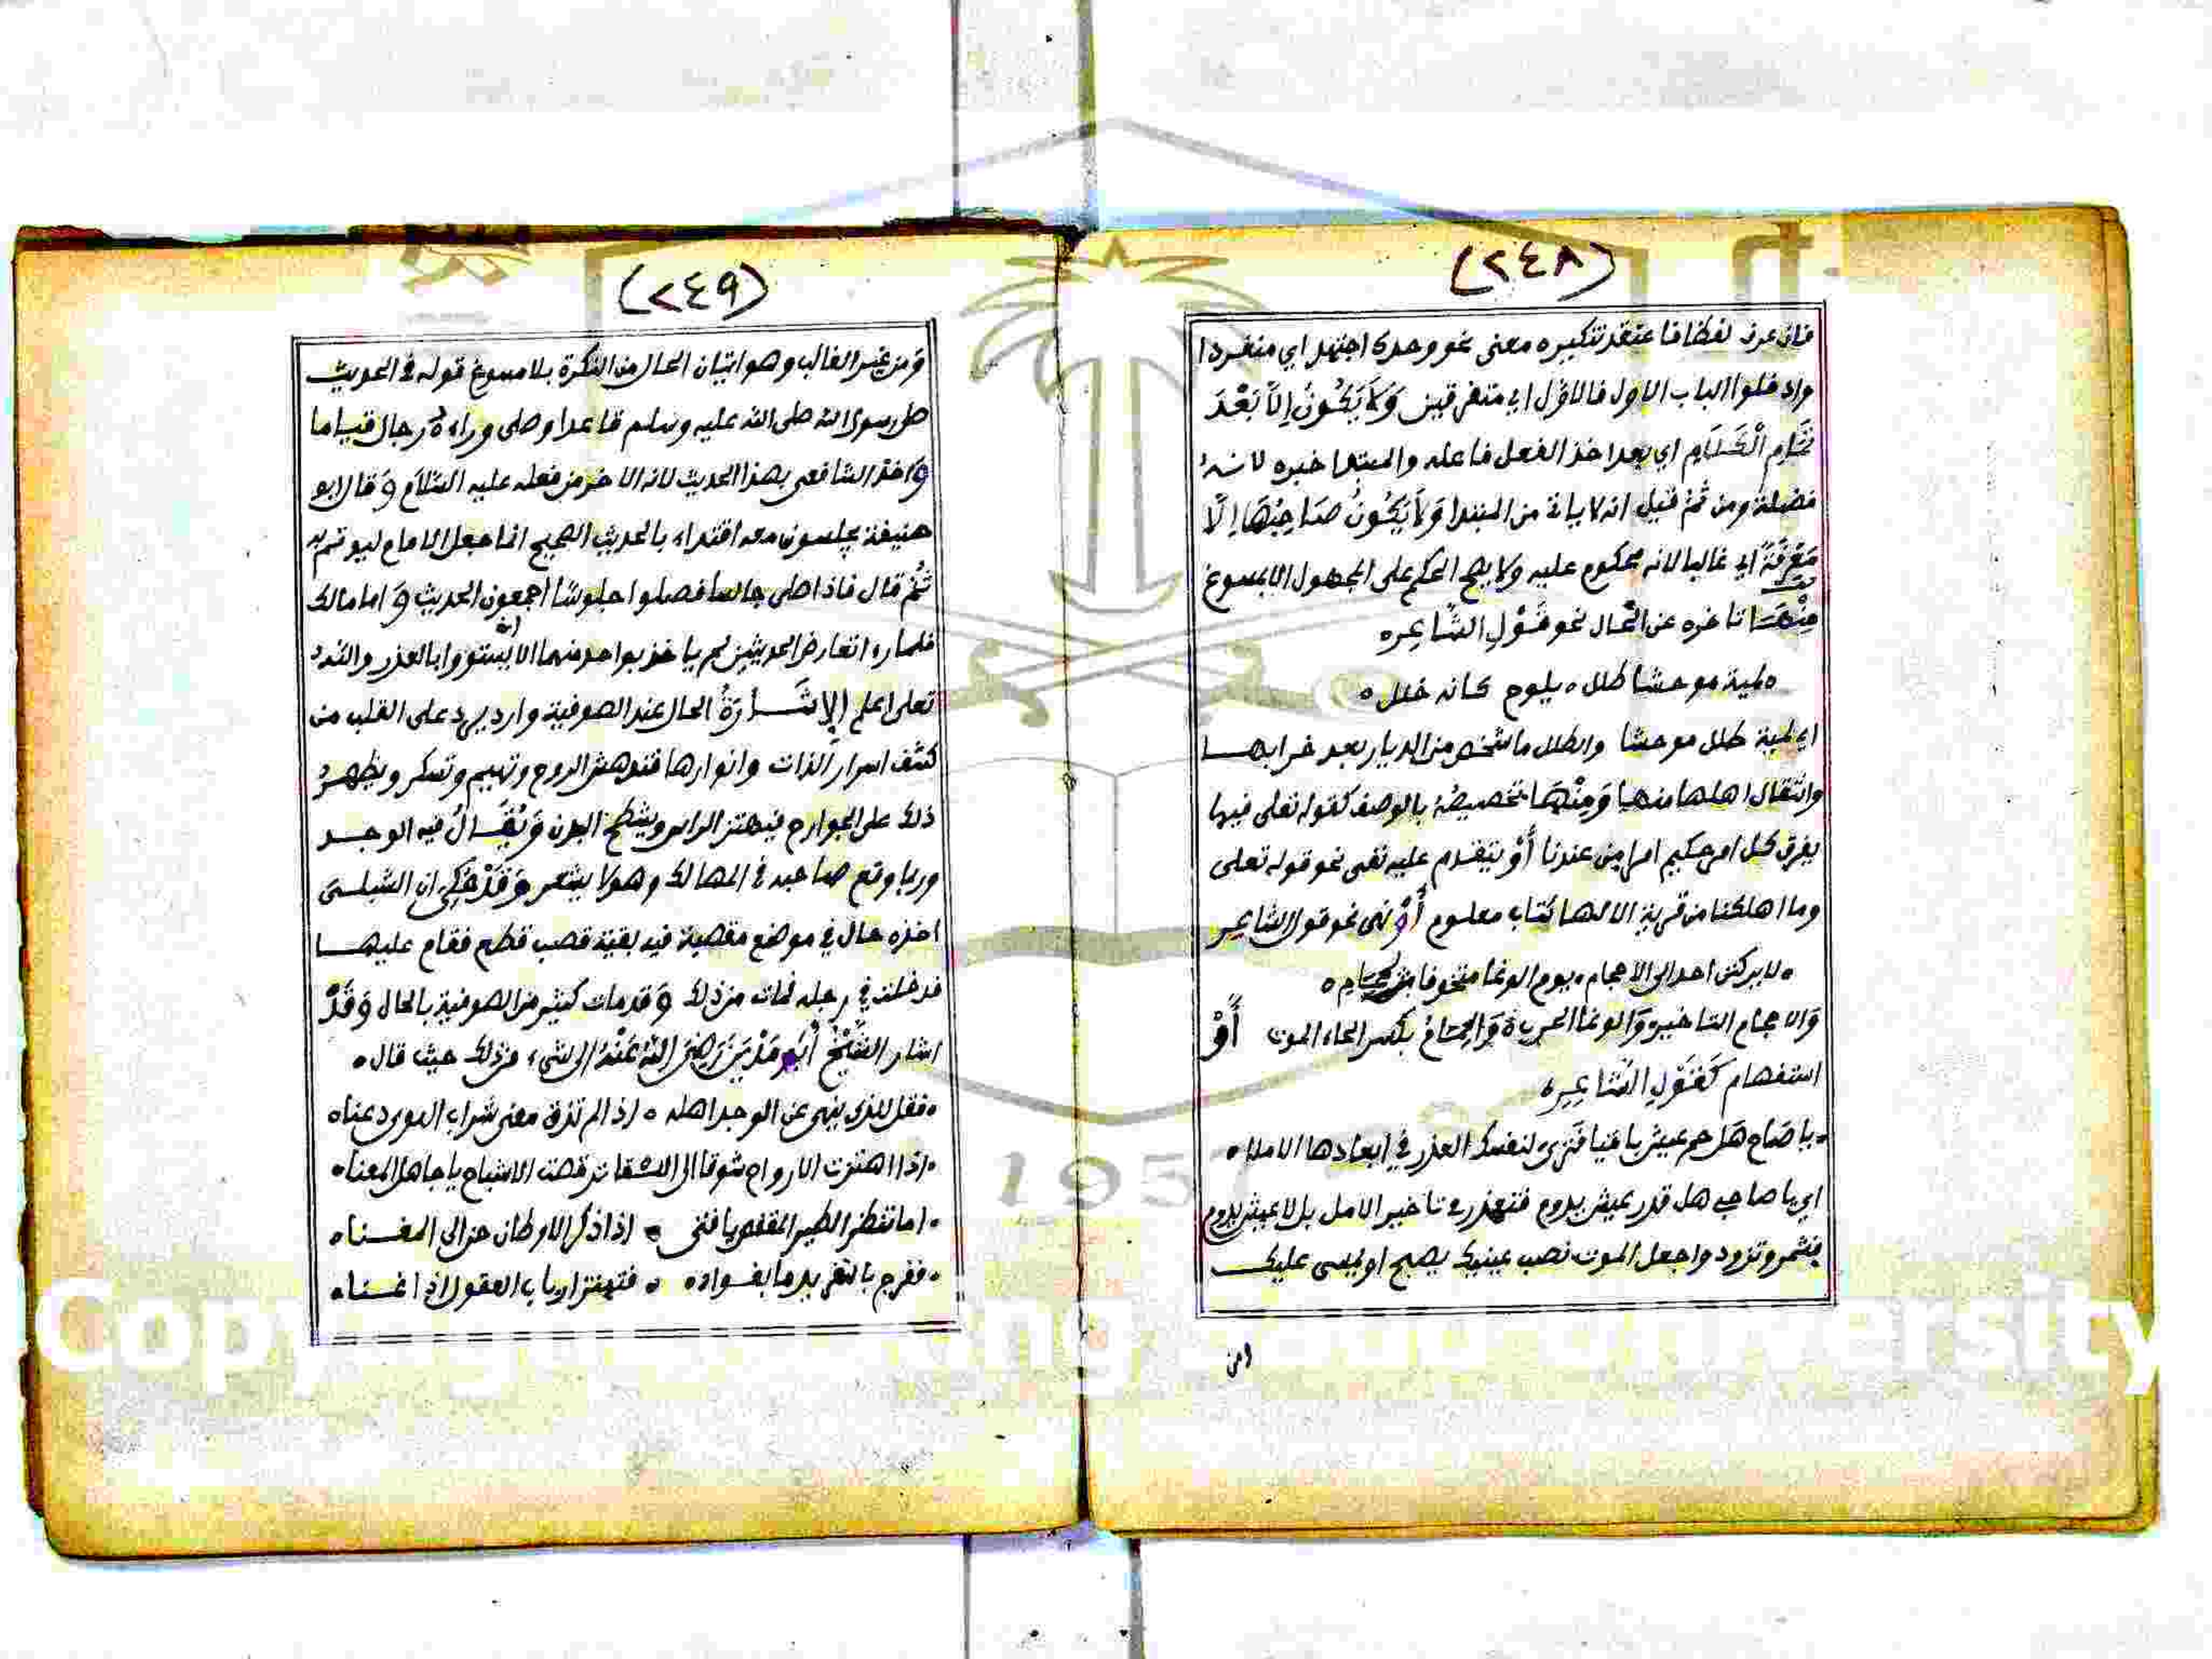 (٢٤٨)
فان عرف لفظا فاعتقد تنكيره معنى نحو وحدك اجتهد اي منفردا
وادخلوا الباب الاول فالاول اي متفرقين وَلاَ يَكُونُ اِلاَّ بَعْدَ
تَمَامِ الْكَلَامِ اي بعد اخذ الفعل فاعله والمبتدا خبره لانه
فضلة ومن ثم قيل انه لا ياتي من المبتدا وَلاَ يَكُونُ صَاحِبُهَا اِلَّا
مَعْرِفَةً اي غالبا لانه محكوم عليه ولا يصح الحكم على المجهول الا بمسوغ
مِنْهَا تاخره عن الحال نحو قَوْلِ الشَّاعِرِ ه
ه لمية موحشا طلل ه يلوح كانه خلل ه
اي لمية طلل موحشا والطلل ما شخص من الديار بعد خرابها
وانتقال اهلها منها وَمِنْهَا تخصيصه بالوصف كقوله تعلى فيها
يفرق كل امر حكيم امرا من عندنا أَوْ يتقدم عليه نفي نحو قوله تعلى
وما اهلكنا من قرية الا لها كتاب معلوم أَوْ نهي نحو قول الشاعر
ه لا يركنن احد الى الاحجام ه يوم الوغا متخوفا لحمام ه
وَالاحجام التاخير وَالوغا الحرب وَالحِمَامُ بكسر الحاء الموت أَوْ
استفهام كَقَوْلِ الشَّاعِرِ ه
ه يا صَاح هَل حم عيش باقيا فَتَرى لنفسك العذر في ابعادها الاملا ه
اي يا صاحبي هل قدر عيش يدوم فتعذر في تاخير الامل بل لا عيش يدوم
فشمر وتزود واجعل الموت نصب عينيك يصبح او يمسى عليك
ومن
(٢٤٩)
وَمن غير الغالب وهو اتيان الحال من النكرة بلا مسوغ قوله في الحديث
صلى رسول الله صلى الله عليه وسلم قاعدا وصلى وراءه رجال قياما
وَاخذ الشافعى بهذا الحديث لانه الاخر من فعله عليه السَّلاَم وَقال ابو
حنيفة يجلسون معه اقتداء بالحديث الصحيح انما جعل الامام ليوتم به
ثُمَّ قال فاذا صلى جالسا فصلوا جلوسًا اجمعون الحديث وَاما مالك
فلما راء تعارض الحديثين لم ياخذ بواحد منهما الا ان يستووا بالعذر والله
تعلى اعلم الاِشَارَةُ الحال عند الصوفية وارد يرد على القلب من
كشف اسرار الذات وانوارها فتدهش الروح وتهيم وتسكر ويظهر
ذلك على الجوارح فيهتز الراس ويشطح البدن وَيُقَالُ فيه الوجد
وربما وقع صاحبه في المهالك وهو لا يشعر وَقَدْ حُكِيَ ان الشبلى
اخذه حال في موضع مقصبة فيه بقية قصب قطع فقام عليها
فدخلت في رجله فمات من ذلك وَقد مات كثير من الصوفية بالحال وَقَدْ
اشار الشَّيْخُ أَبُو مَدْيَنَ رَضِيَ اللهُ عَنْهُ الى شيء من ذلك حيث قال ه
ه فقل للذي ينهى عن الوجد اهله ه اذا لم تذق معنى شراب الهوى دعنا ه
ه اذا اهتزت الارواح شوقا الى اللقا ترقصت الاشباح يا جاهل المعنا ه
ه اما تنظر الطير المقفص يا فتى ه اذا ذكر الاوطان حن الى المغنا ه
ه ففرج بالتغريد ما بفواده ه فتهتز ارباب العقول اذا غنا ه
Copyright © King Saud University
195